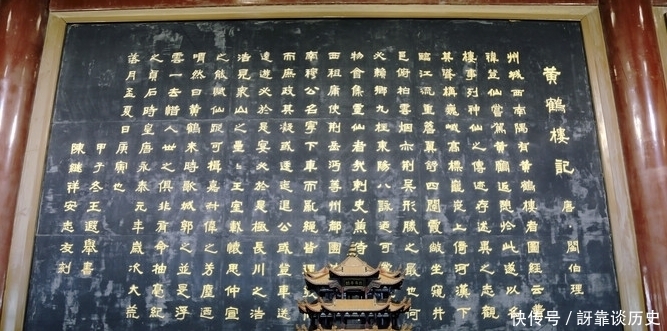 黃鶴樓記
唐·閻伯理
州城西南隅有黃鶴樓者圖經云費
禕登仙嘗駕黃鶴返憩於此遂以名
樓事列神仙之傳迹存述異之志觀
其聳構巍峨高標巃嵸上倚河漢下
臨江流重簷翼舒四闥霞敞坐窺井
邑俯拍雲烟亦荆吴形勝之最也何
必賴鄉九柱東陽八詠迺可賞
物會集靈仙者哉刺史兼侍
西租庸使荆岳沔等州都團
南穆公名寧下車而亂繩皆
而庶政其凝或逶迤退公或登車送
遠遊必於是宴必於是極長川之浩
浩見衆山之壘壘王室載懷思仲宣
之能賦仙蹤可揖嘉叔偉之芳塵迺
喟然曰黃鶴來時歌城郭之並是浮
雲一去惜人世之俱非有命抽毫紀
之貞石時皇唐永泰元年歲次大荒
落月孟夏日庚寅也
甲子冬王遐舉書
陳繼祥安志友刻
快传号/訝靠谈历史